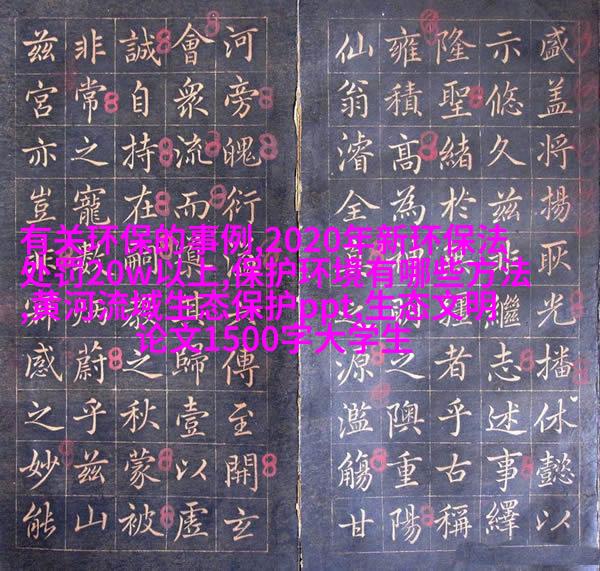 盛盖將揚耿光播休懿以
示悠久兹非繼志述事繹
隆聖緒於者乎古稱
雍積高為之隩重陽
仙翁濬全源濫觴甘
河旁魄衍傳至開玄
會眾流而其歸壹以虛
誠自持在嗣之秋蒙被
非常之寵敷蔚乎兹山
兹宮亦豈非感之妙能
有关环保的事例,2020年新环保法
处罚20w以上,保护环境有哪些方法
,黄河流域生态保护ppt,生态文明
论文1500字大学生